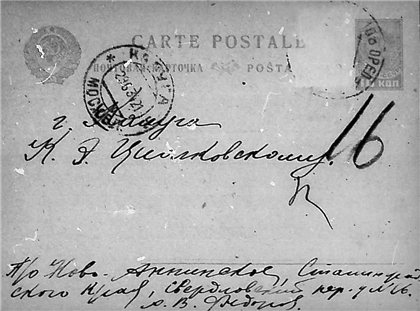 CARTE POSTALE
ПОЧТОВАЯ КАРТОЧКА POŜTA
КАЛУГА
МОСК
КОП
г. Калуга
К. Э. Циолковскому.
16
п/о Ново-Аннинское, Сталинград
ского края, Свердловский пер. д № 16.
А. В. Федоров.